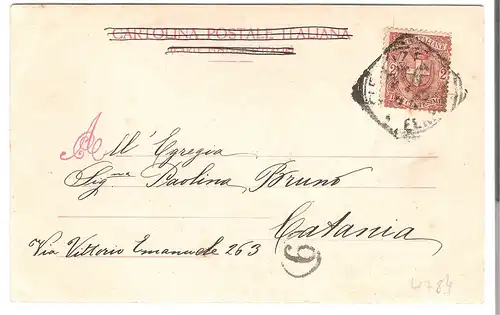 CARTOLINA POSTALE ITALIANA
2
A
All' Egregia
Sig.na Paolina Bruno
Catania
Via Vittorio Emanuele 263
6
4784